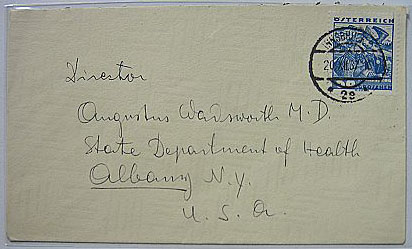 ÖSTERREICH
INNSBRUCK
Director
Augustus Wadsworth M.D.
State Department of Health
Albany N.Y.
U.S.A.